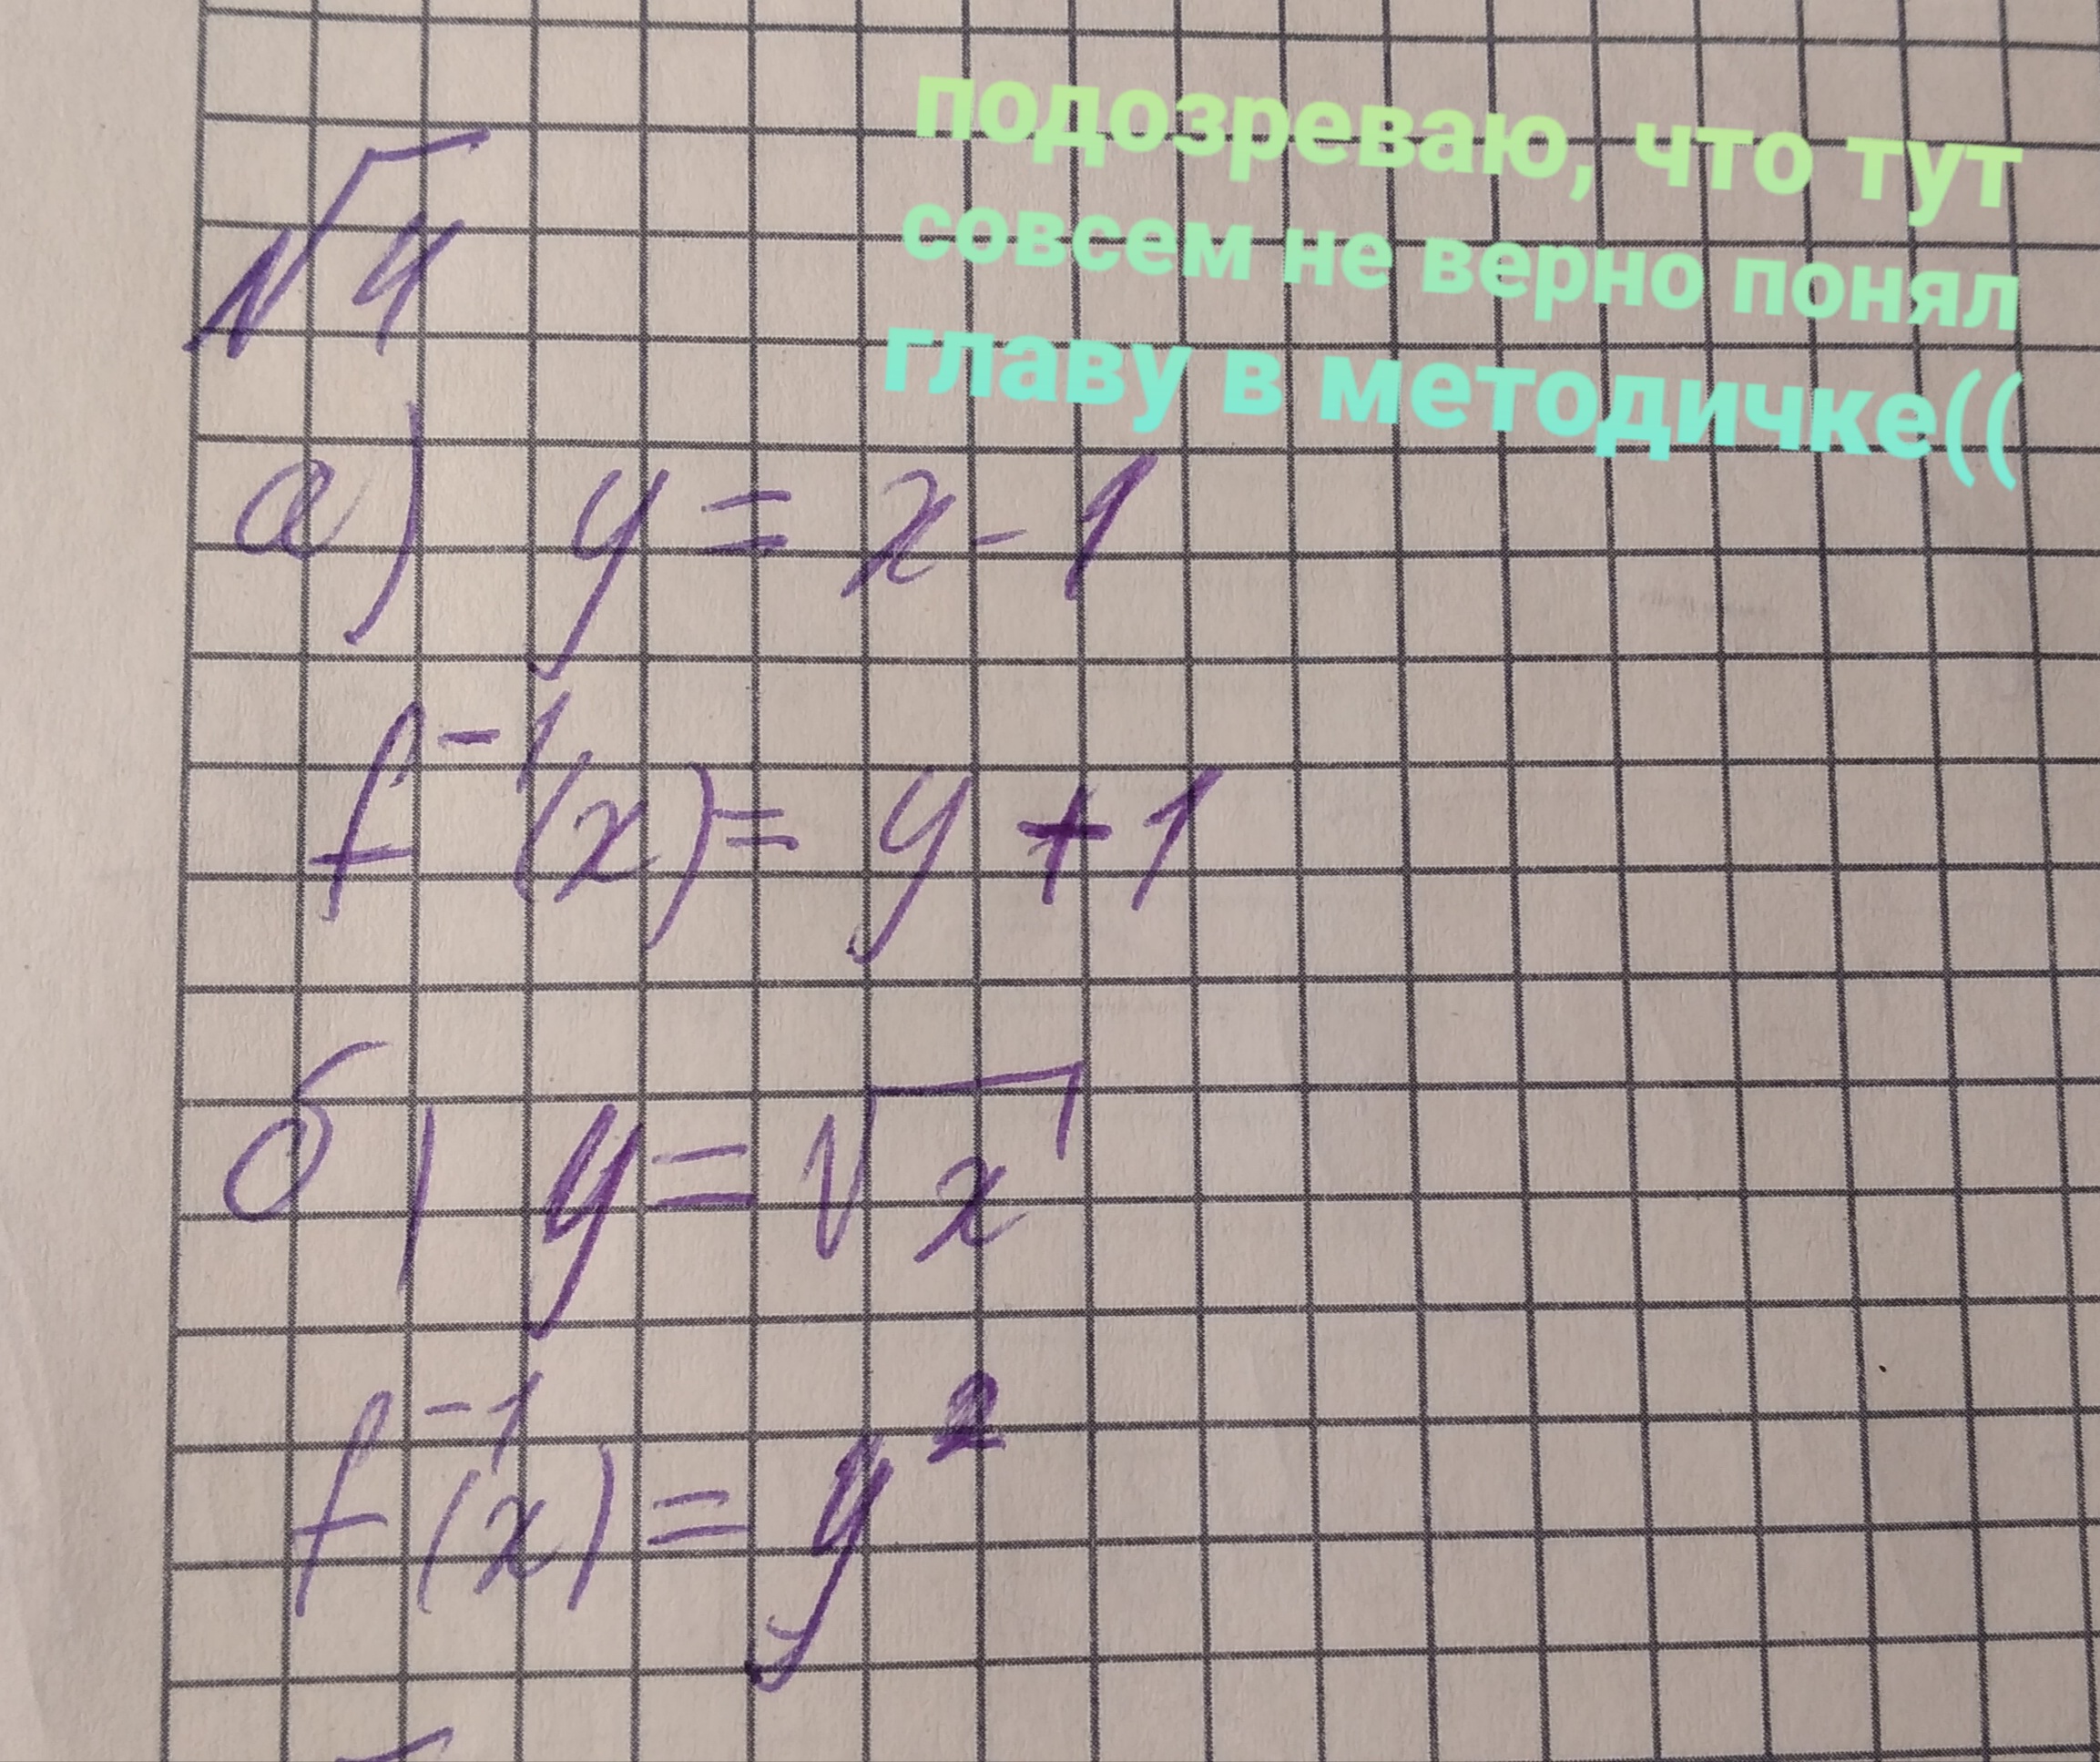 подозреваю, что тут
совсем не верно понял
главу в методичке((
√4
а) y = x - 1
f⁻¹(x) = y + 1
б) y = √x
f⁻¹(x) = y²